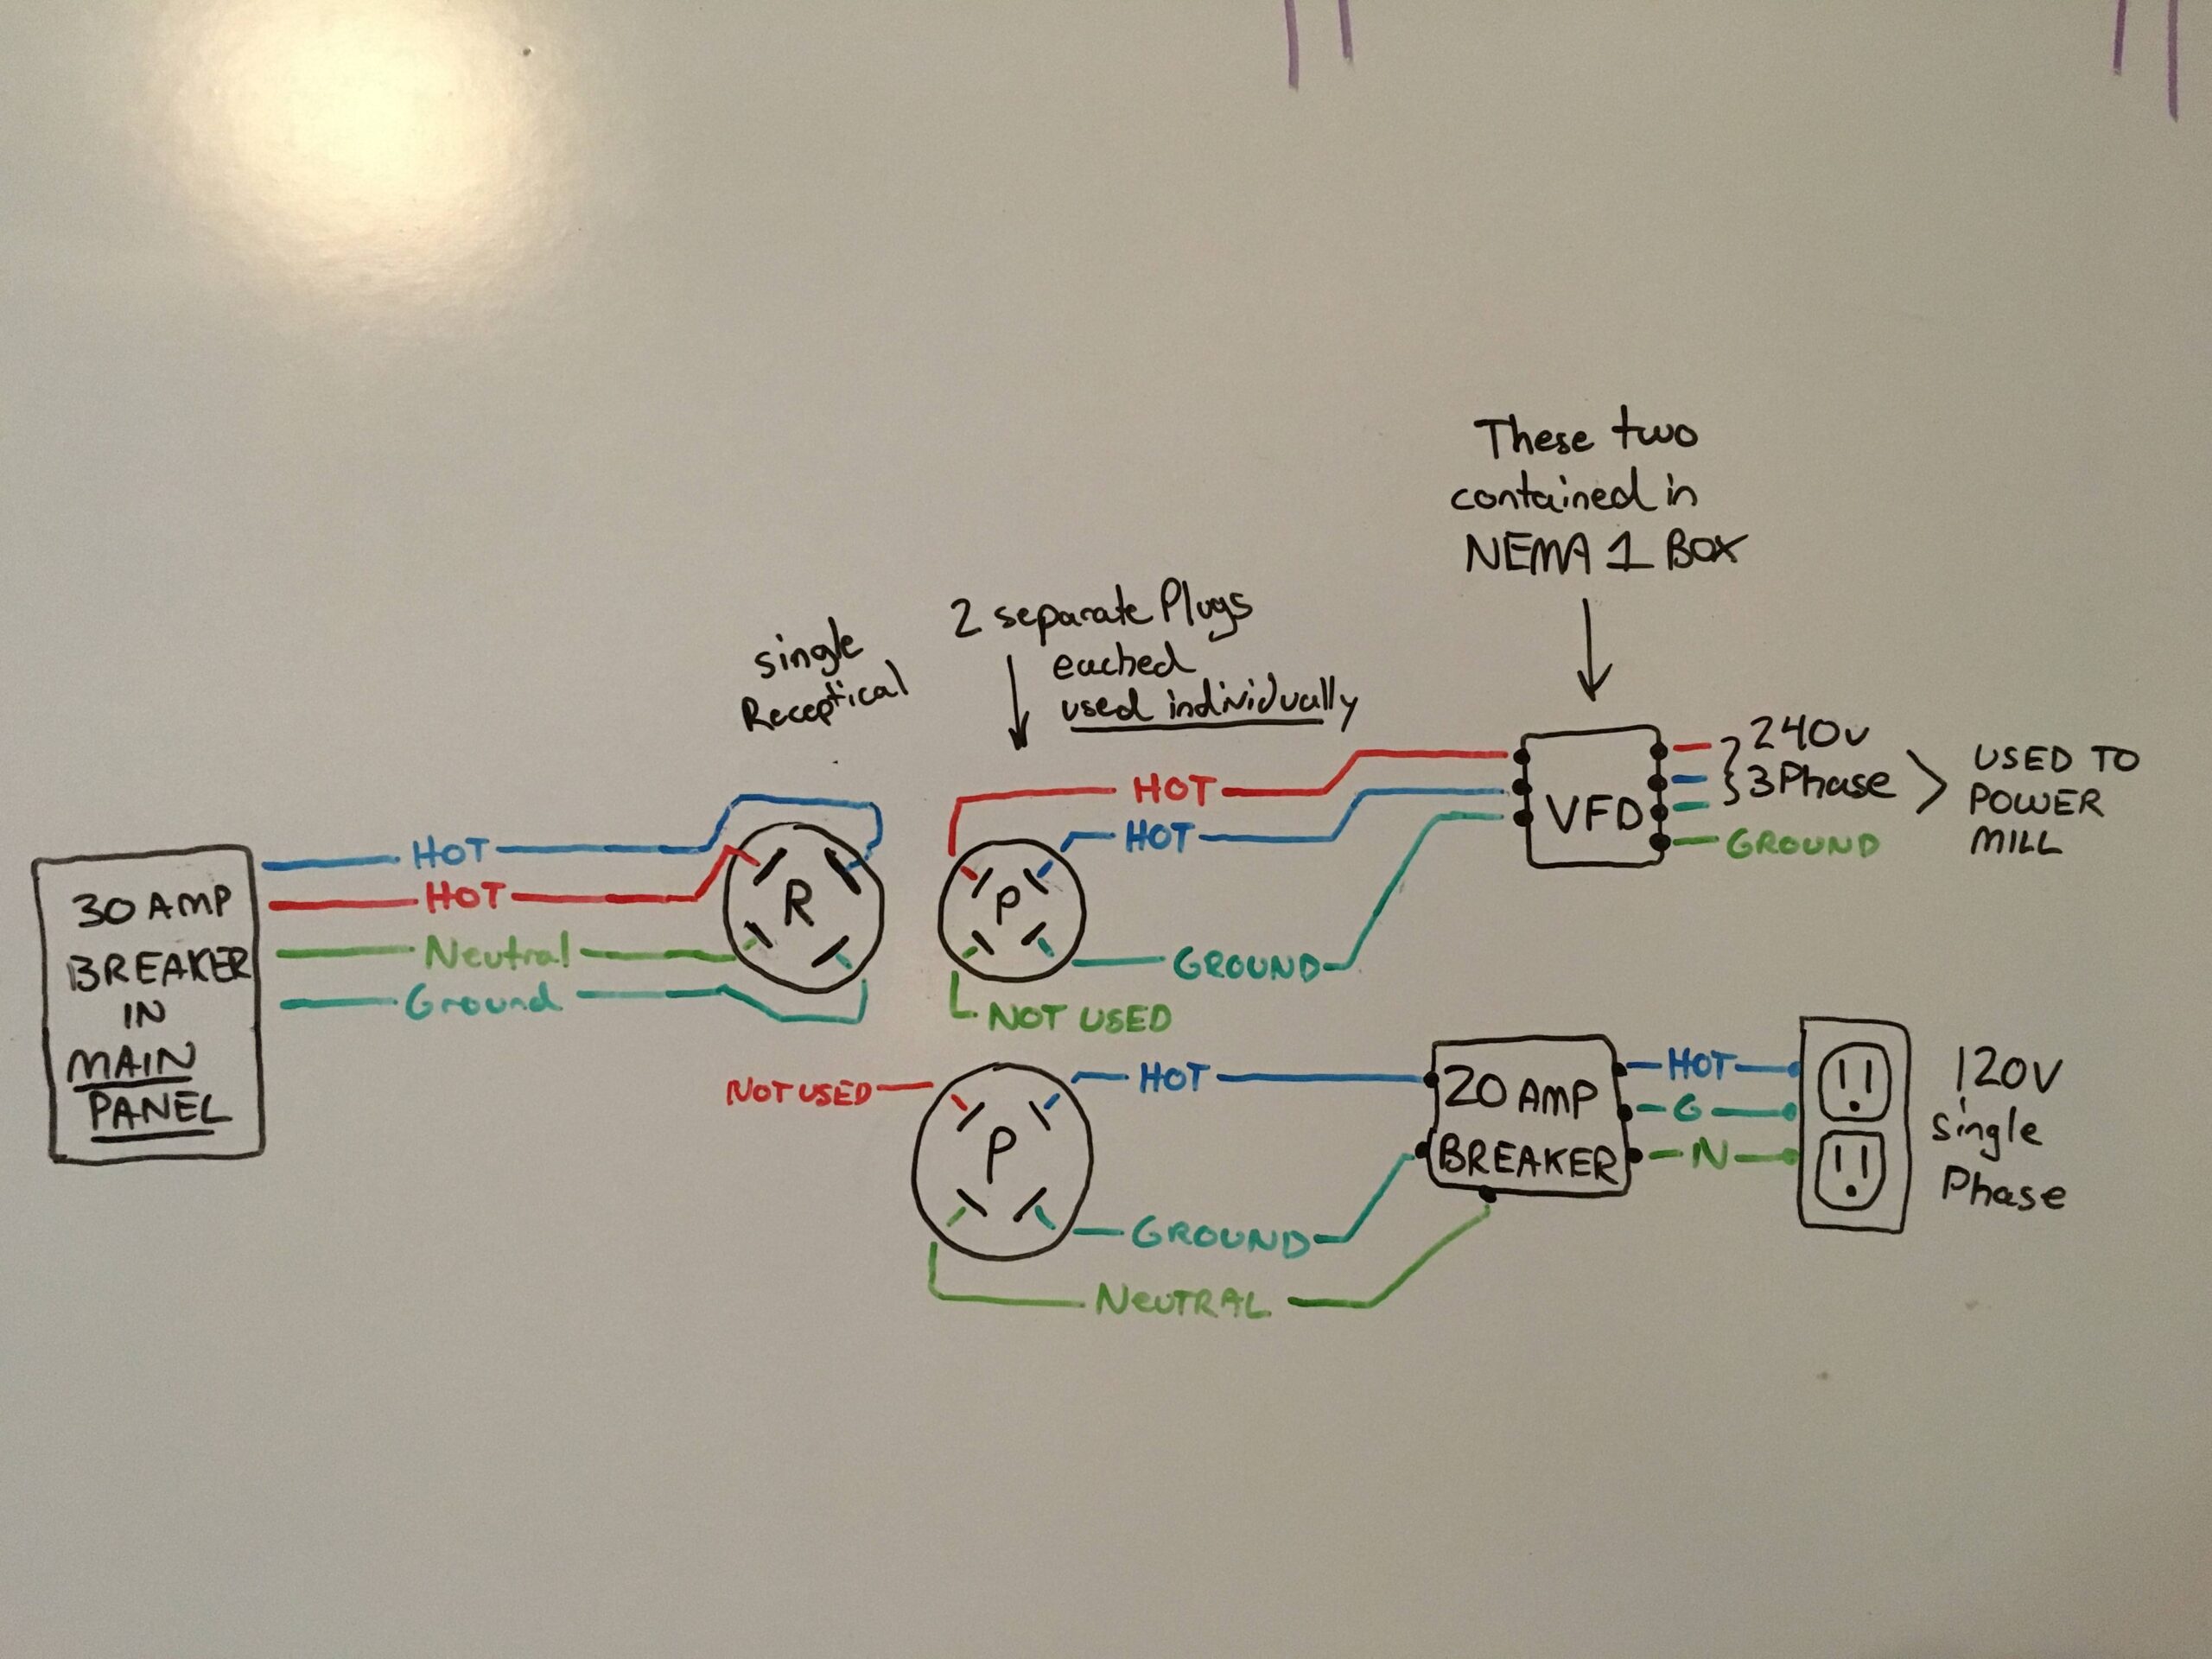 These two
contained in
NEMA 1 BOX
2 separate Plugs
eached
used individually
single
Receptical
HOT
HOT
Neutral
Ground
30 AMP
BREAKER
IN
MAIN
PANEL
R
P
HOT
HOT
GROUND
NOT USED
VFD
240v
3 Phase
GROUND
USED TO
POWER
MILL
NOT USED
P
HOT
GROUND
NEUTRAL
20 AMP
BREAKER
HOT
G
N
120V
Single
Phase